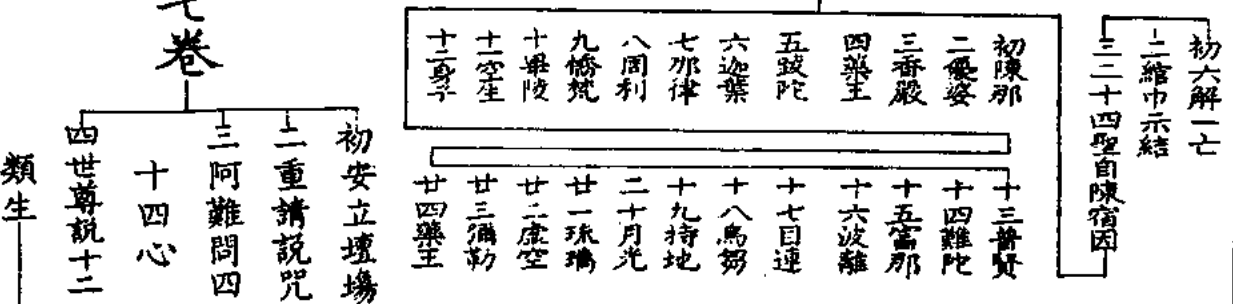 初六解一亡
二綰巾示結
三二十四聖自陳宿因
初陳那
二優婆
三香嚴
四藥王
五跋陀
六迦葉
七那律
八周利
九憍梵
十畢陵
十一空生
十二身子
十三普賢
十四難陀
十五富那
十六波離
十七目連
十八烏芻
十九持地
二十月光
廿一琉璃
廿二虛空
廿三彌勒
廿四藥王
七卷
初安立壇場
二重請説咒
三阿難問四
十四心
四世尊説十二
類生